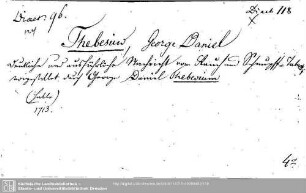 Diaet. 96.
Diaet. 118
Thebesius, George Daniel
Deutliche und ausführliche Nachricht von Rauch und Schnupff-Taback
vorgestellet durch George Daniel Thebesium
(Halle)
1713.
4°
Sächsische Landesbibliothek -
Staats- und Universitätsbibliothek Dresden